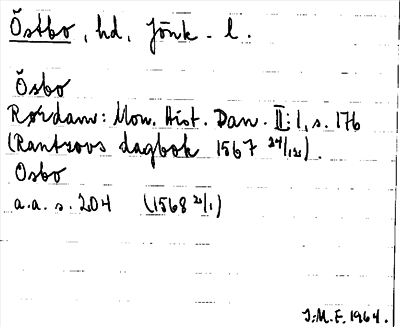 Östbo, hd, Jönk. l.
Ösbo
Rørdam: Mon. Hist. Dan. II:1, s. 176
(Rantzovs dagbok 1567 24/12).
Osbo
a.a. s. 204 (1568 21/1)
J.M.F. 1964.